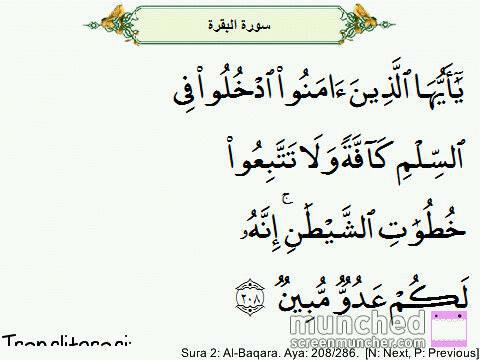 سورة البقرة
يَٰٓأَيُّهَا ٱلَّذِينَ ءَامَنُوا۟ ٱدْخُلُوا۟ فِى
ٱلسِّلْمِ كَآفَّةً وَلَا تَتَّبِعُوا۟
خُطُوَٰتِ ٱلشَّيْطَٰنِ ۚ إِنَّهُۥ
لَكُمْ عَدُوٌّ مُّبِينٌ ٢٠٨
munched
screenmuncher.com
Sura 2: Al-Baqara. Aya: 208/286. [N: Next, P: Previous]